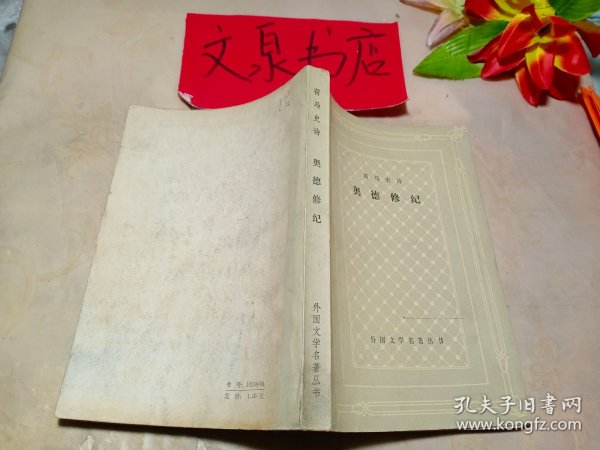 文泉书店
荷马史诗
奥德修纪
外国文学名著丛书
荷马史诗
奥德修纪
外国文学名著丛书
定价:
孔夫子旧书网
www.kongfz.com